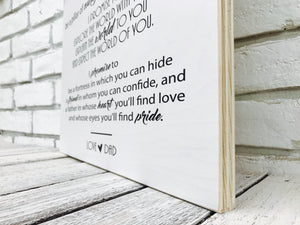 I PROMISE TO
EXPLORE THE WORLD WITH
AROUND THE World TO YOU
AND EXPECT THE WORLD OF YOU.
I promise to
be a fortress in which you can hide
a friend in whom you can confide, and
a father in whose heart you'll find love
and whose eyes you'll find pride.
LOVE ♥ DAD